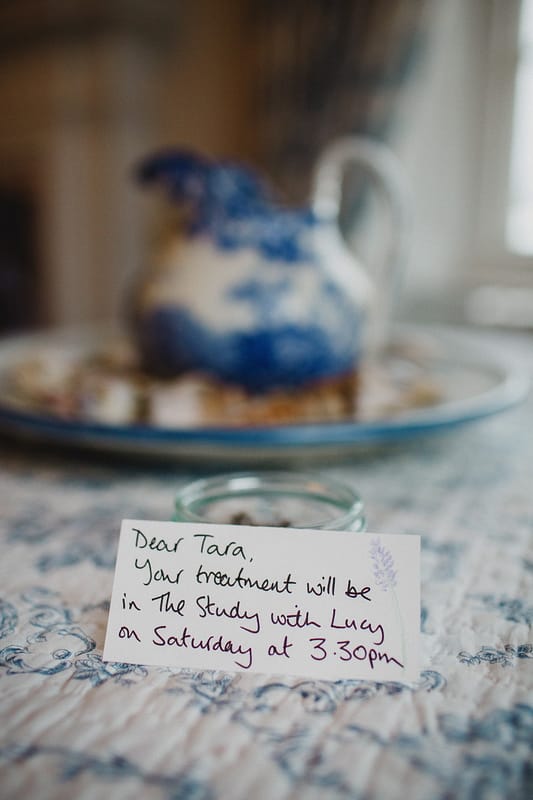 Dear Tara,
Your treatment will be
in The Study with Lucy
on Saturday at 3.30pm